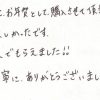 お年賀として、購入させて頂
しかったです。
でもらえました!!
寧に、ありがとうございま